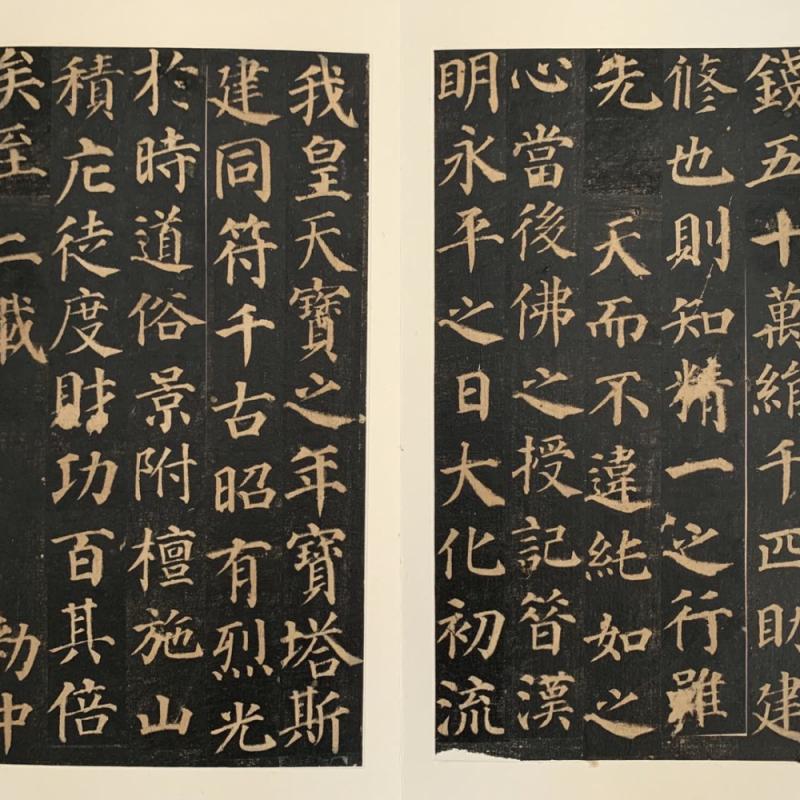 錢五十萬絹千匹助建
修也則知精一之行雖
先 天而不違純如之
心當後佛之授記昔漢
明永平之日大化初流
我皇天寶之年寶塔斯
建同符千古昭有烈光
於時道俗景附檀施山
積庀徒度財功百其倍
矣至 二載 勑中